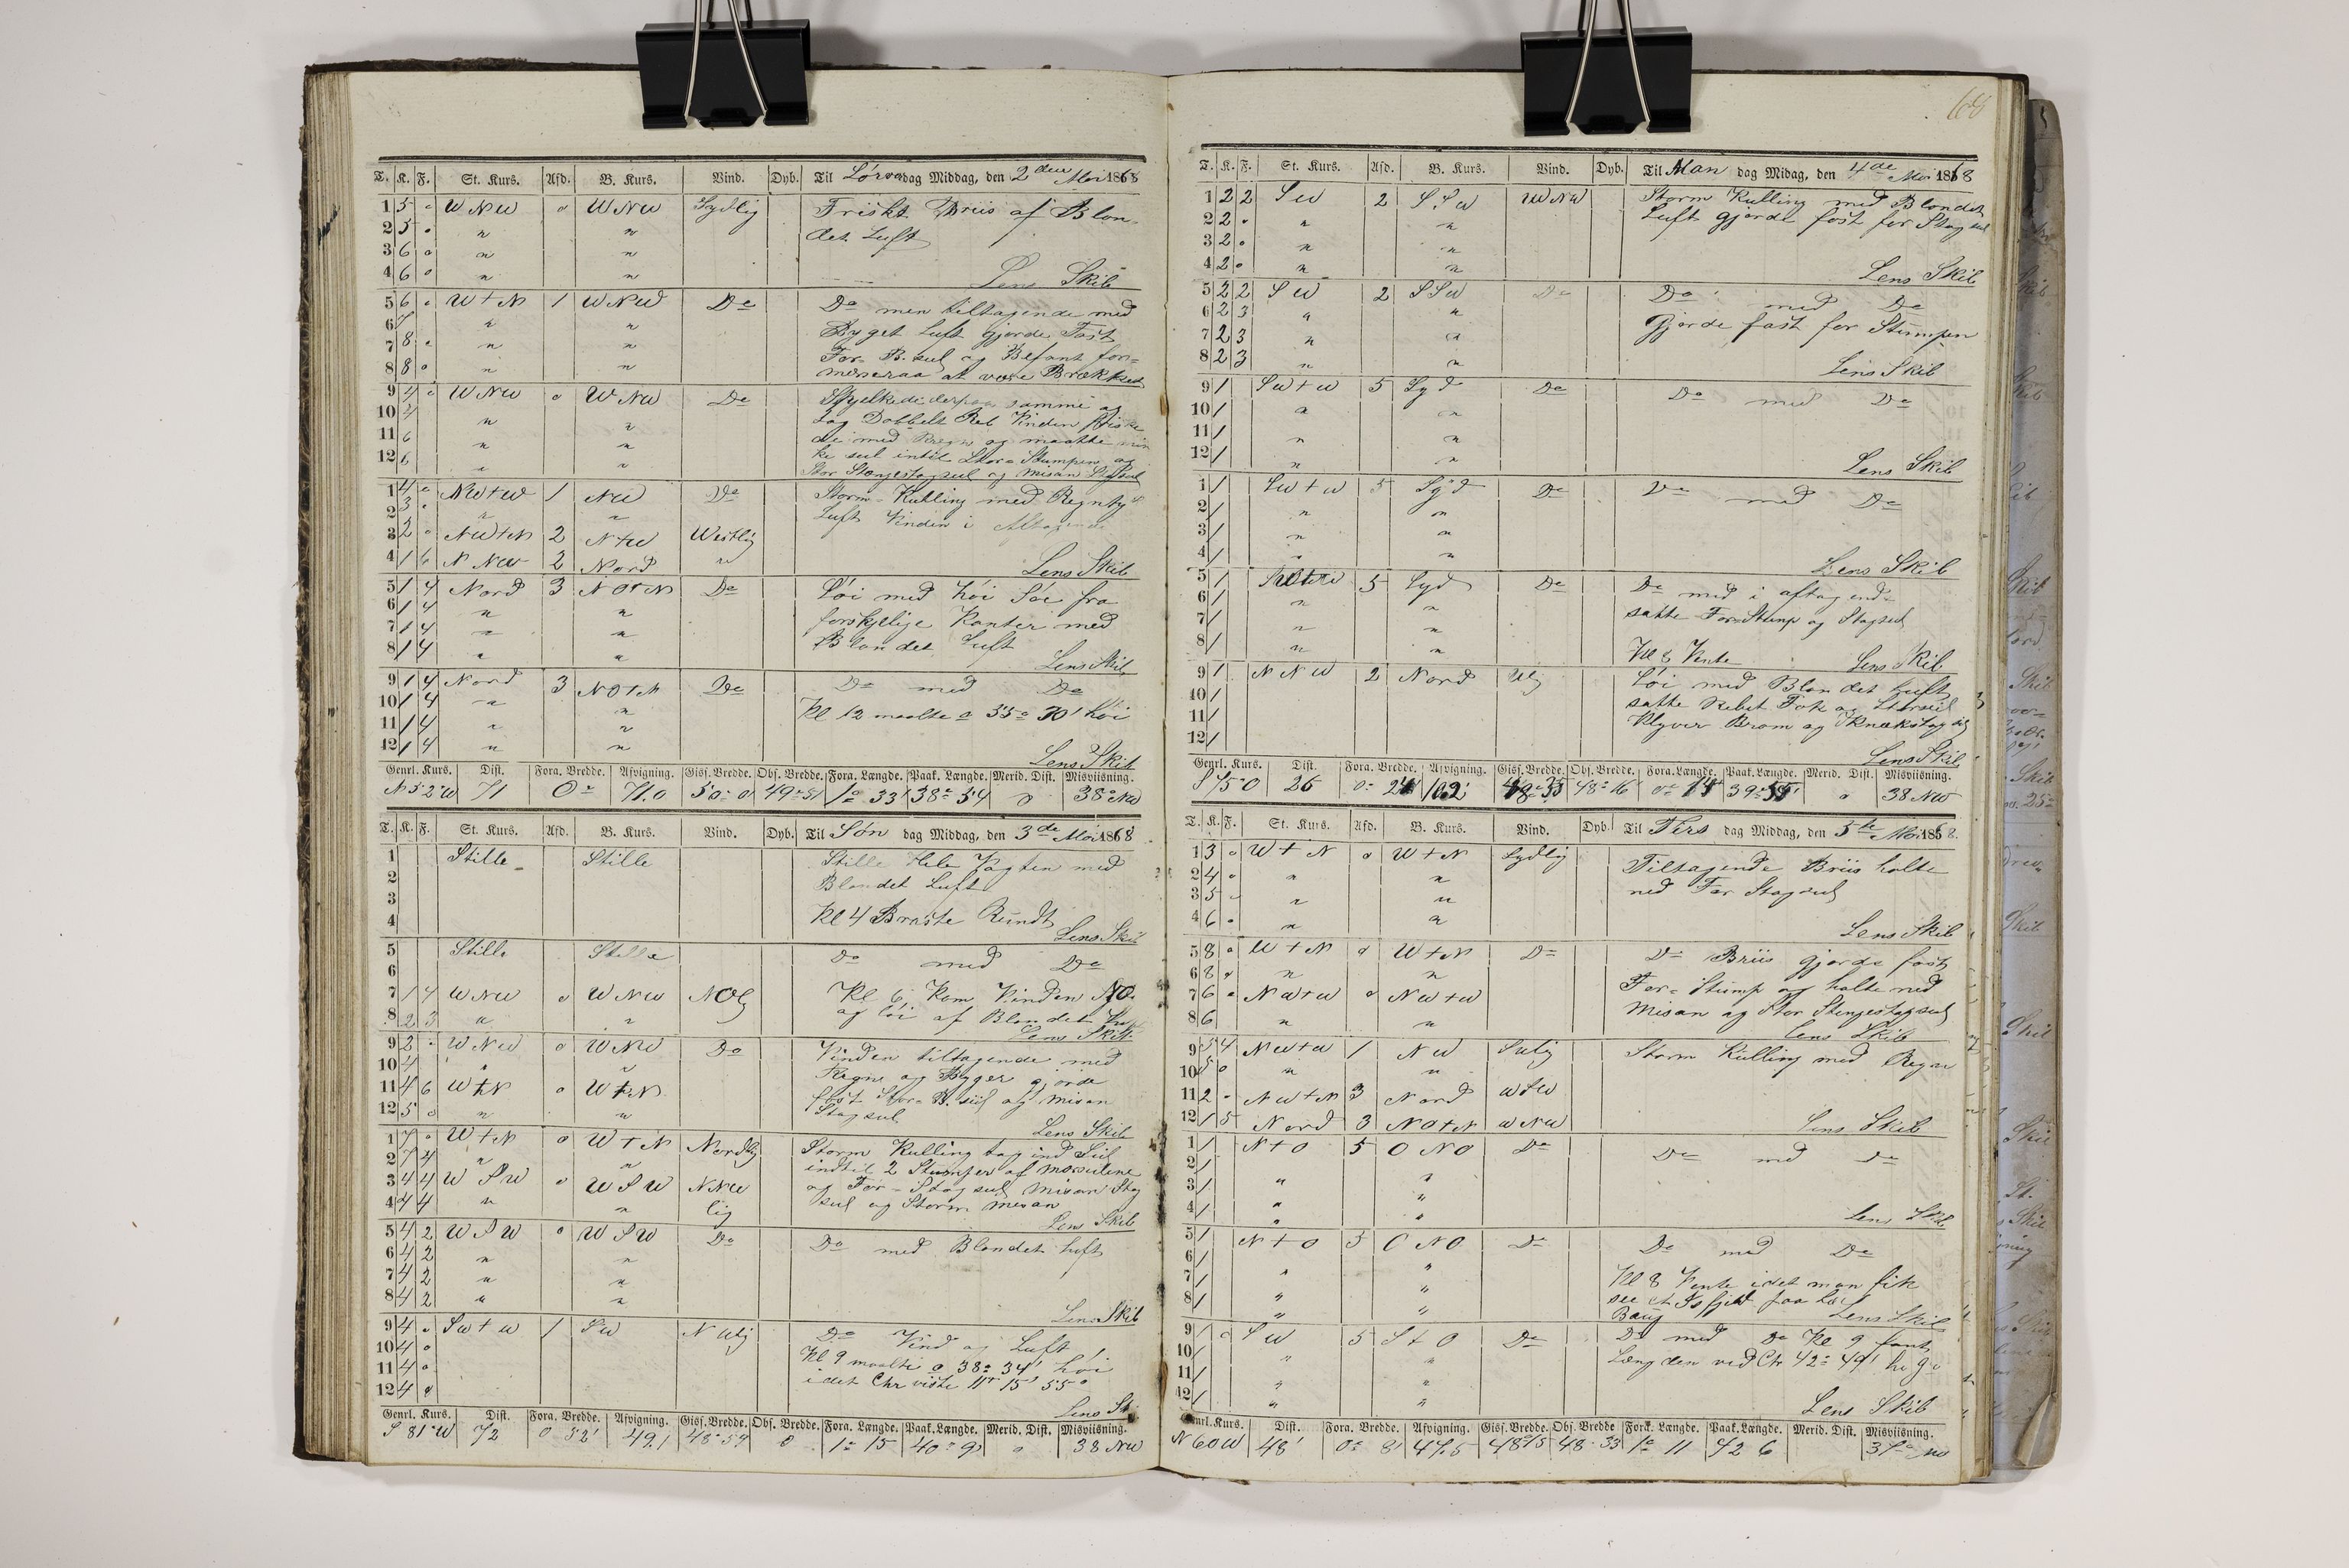 T. K. F. St. Kurs. Afd. B. Kurs. Vind. Dyb. Til Løverdag Middag, den 2den Mai 1868
1 5 o WNW o WNW Sydlig Friskt Briis af Blon-
2 5 o " " det Luft
3 6 o " "
4 6 o " " Lens Skib
5 6 o W+N 1 WNW Do Do men tiltagende med
6 7 " " Byget Luft gjorde Fast
7 8 " " For B. seil og Befant for-
8 8 o " " mærseraa at være Brækket
9 4 o WNW o WNW Do Skjelkede derpaa samme og
10 4 " " tog Dobbelt Reb Vinden friske
11 6 " " de med Regn og maatte min
12 6 " " ke seil intil Store Stumpen og
Stor Stengestagseil og Misan
1 4 o NW+W 1 NW Do Storm-Kulling med Regntyk
2 3 o " " Luft Vinden i Aftagende
3 2 o NW+N 2 N+W Westlig
4 1 6 N NW 2 Nord " Lens Skib
5 1 4 Nord 3 NO+N Do Løi med høi Søe fra
6 1 4 " " forskjelige Kanter med
7 1 4 " " Blondet Luft
8 1 4 " " Lens Skib
9 1 4 Nord 3 NO+N Do Do med Do
10 1 4 " " Kl 12 maalte 55° 30' høi
11 1 4 " "
12 1 4 " " Lens Skib
Genrl. Kurs. Dist. Fora. Bredde. Afvigning. Gisf. Bredde. Obs. Bredde. Fora. Længde. Paak. Længde. Merid. Dist. Misviisning.
N 52° W 71 0° 71.0 50° 0 49° 51 1° 33' 38° 54 o 38° NW
T. K. F. St. Kurs. Afd. B. Kurs. Vind. Dyb. Til Søn dag Middag, den 3de Mai 1868
1 Stille Stille Stille Hele Vagten med
2 Blandet Luft
3
4 Kl 4 Braste Rundt Lens Skib
5 Stille Stille Do med Do
6
7 1 4 WNW o WNW NOlg Kl 6 Kom Vinden NO
8 2 3 " " og løi af Blondet Luft
Lens Skib
9 2 WNW o WNW Do Vinden tiltagende med
10 4 " " Regn og Byger gjorde
11 4 6 W+N o W+N fast Stor B. seil og misan
12 5 o " " Stagseil Lens Skib
1 7 o W+N o W+N Nordlig Storm Kulling tog ind Seil
2 7 4 " " indtil 2 Stumper af mærseilene
3 4 4 W S W o W S W NNW og For-Stagseil Misan Stag
4 4 4 " " lig seil og Storm misan Lens Skib
5 4 2 W S W o W S W Do Do med Blondet luft
6 4 2 " "
7 4 2 " "
8 4 2 " " Lens Skib
9 4 o SW+W 1 SW NWlig Do Vind og Luft
10 4 o Kl 9 maalte 38° 34' høi
11 4 o i det Chr viste 11t 15' 55
12 4 o Lens Sk
Genrl. Kurs. Dist. Fora. Bredde. Afvigning. Gisf. Bredde. Obs. Bredde. Fora. Længde. Paak. Længde. Merid. Dist. Misviisning.
S 81° W 72 0 52' 49.1 48° 59 o 1° 15 40° 9' o 38 NW
68
T. K. F. St. Kurs. Afd. B. Kurs. Vind. Dyb. Til Man dag Midag, den 4de Mai 1868
1 2 2 SW 2 S.SW WNW Storm Kulling med Blondet
2 2 o " " Luft gjorde fast for Stagseil
3 2 o " "
4 2 o " " Lens Skib
5 2 2 SW 2 SSW Do Do med Do
6 2 3 " " Gjorde fast for Stumpen
7 2 3 " "
8 2 3 " " Lens Skib
9 1 SW+W 5 Syd Do Do med Do
10 1 " "
11 1 " "
12 1 " " Lens Skib
1 1 SW+W 5 Syd Do Do med Do
2 1 " "
3 1 " "
4 1 " " Lens Skib
5 1 5 Syd Do Do med i aftagende
6 1 " " satte For-Stump og Stagseil
7 1 " "
8 1 " " Kl 8 Vente Lens Skib
9 1 N N W 2 Nord Wlig Løi med Blondet luft
10 1 satte Rebet Fok og Storseil
11 1 Klyver Brom og Knækstagseil
12 1 Lens Skib
Genrl. Kurs. Dist. Fora. Bredde. Afvigning. Gisf. Bredde. Obs. Bredde. Fora. Længde. Paak. Længde. Merid. Dist. Misviisning.
S 75° O 26 0° 10.2' 48° 35 48° 16 0° 15 39° o 38 NW
T. K. F. St. Kurs. Afd. B. Kurs. Vind. Dyb. Til Tirs dag Middag, den 5te Mai 1868
1 3 o W+N o W+N Sydlig Tiltagende Briis halte
2 4 o " " ned For Stagseil
3 5 " "
4 6 o " " Lens Skib
5 8 o W+N o W+N Do Do Briis gjorde fast
6 8 o " " For-Stump og halte ned
7 6 o NW+W o NW+W Misan og Stor Stengestagseil
8 6 " " Lens Skib
9 5 4 NW+W 1 NW SWlig Storm Kulling med Regn
10 5 o " "
11 2 o NW+N 3 Nord W+W
12 1 5 Nord 3 NO+N WNW Lens Skib
1 1 N+O 5 O NO Do Do med do
2 1 "
3 1 " "
4 1 " " Lens Skib
5 1 N+O 5 O NO Do Do med Do
6 1 " "
7 1 " " Kl 8 Vente i det man fik
8 1 " " see et Isfjeld paa Læ
Baug Lens Skib
9 1 o SW 5 S+O Do Do med do Kl 9 fant
10 1 " " Længden ved Chr 42° 49'
11 1 " "
12 1 " " Lens Skib
Genrl. Kurs. Dist. Fora. Bredde. Afvigning. Gisf. Bredde. Obs. Bredde Fora. Længde. Paak. Længde. Merid. Dist. Misviisning.
N 60 W 48' 0° 8' 47.5 48° 15 48° 33 1° 11 42 6 37°